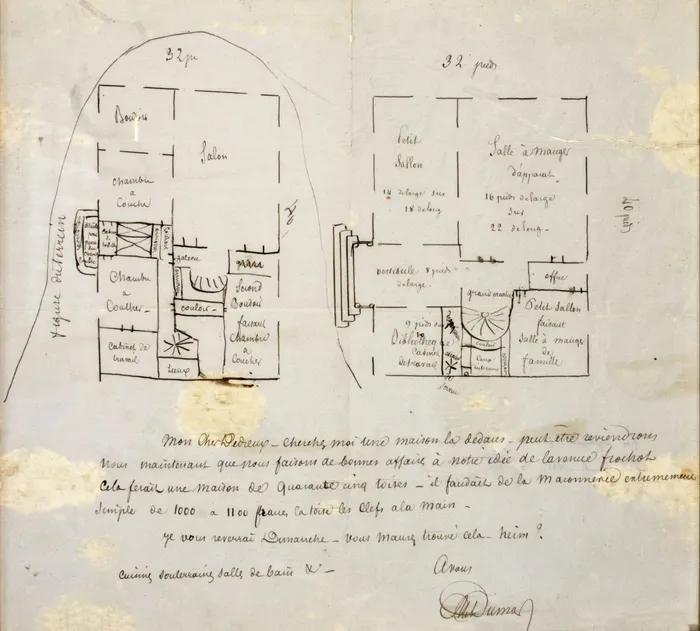 32 pi
32 pieds
Boudoir
Salon
chambre
a
Couché
galerie
Chambre
a
Couther
couloir
Second
Boudoir
faisant
chambre
a
Coucher
Cabinet de
travail
figure du terrain
Petit
Sallon
14 de large sur
18 de long
Salle à manger
d'apparat
16 pieds de large
sur
22 de long
vestibule 8 pieds
de large
office
grand escalier
9 pieds sur
Bibliotheque
Cabinet
de travail
couloir
Petit Sallon
faisant
Salle à manger
de
famille
Mon Cher Dedreux - cherchez moi une maison la dedans - peut être reviendrons
nous maintenant que nous faisons de bonnes affaires à notre idée de lavenue frochot
Cela ferait une maison de Quarante cinq toises - il faudrait de la maconnerie extremement
simple de 1000 a 1100 francs la toise les Clefs a la main -
Je vous reverrai Dimanche - vous maurez trouvé cela - heim?
cuisines souterraines salles de bain & -
A vous
Alex Dumas